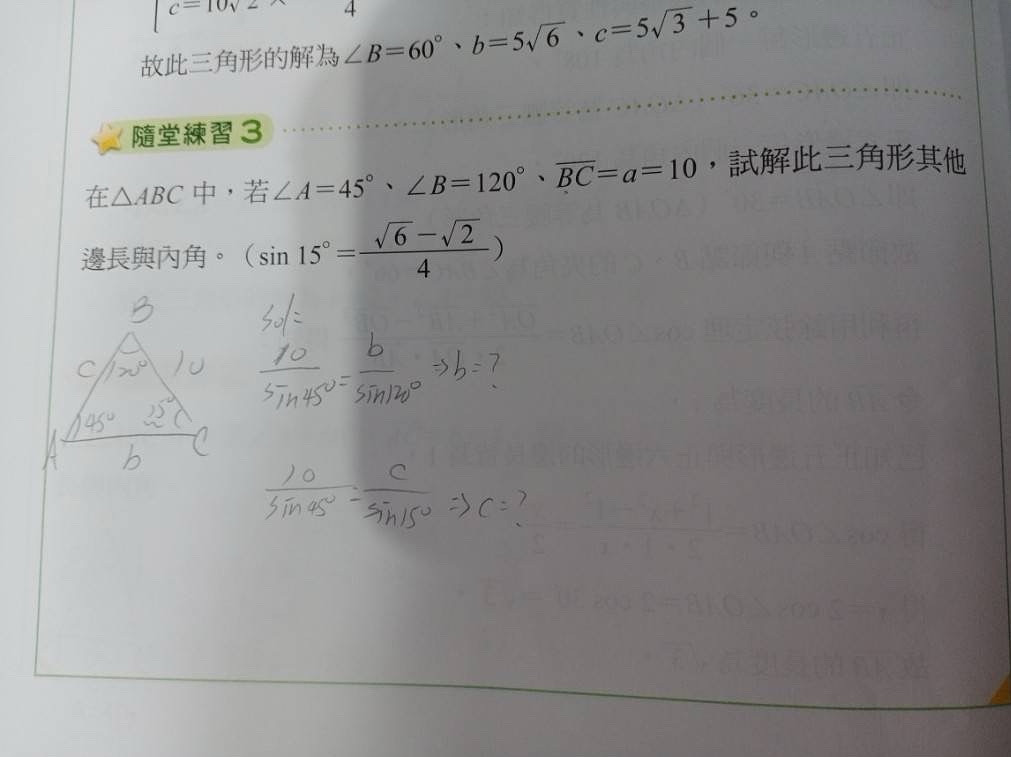 c=10√2 ×
4
故此三角形的解為∠B=60°、b=5√6、c=5√3+5。
隨堂練習3
在△ABC 中,若∠A=45°、∠B=120°、BC=a=10,試解此三角形其他
邊長與內角。(sin 15°=(√6-√2)/4)
B
c 120° 10
45° 15°
A b C
sol=
10/sin45°=b/sin120° ⇒b=?
10/sin45°=c/sin15° ⇒c=?